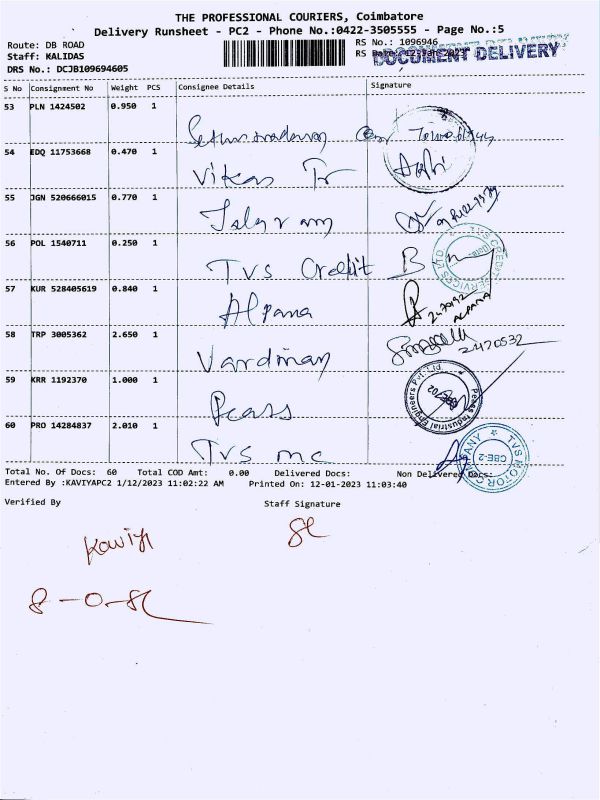 THE PROFESSIONAL COURIERS, Coimbatore
Delivery Runsheet - PC2 - Phone No.:0422-3505555 - Page No.:5
Route: DB ROAD
RS No.: 1096946
Staff: KALIDAS
RS Date: 12-Jan-2023
DOCUMENT DELIVERY
DRS No.: DCJB109694605
S No Consignment No Weight PCS Consignee Details Signature
53 PLN 1424502 0.950 1
54 EDQ 11753668 0.470 1
Vikas Tr
55 JGN 520666015 0.770 1
56 POL 1540711 0.250 1
TVS Credit
TVS CREDIT SERVICES LTD
57 KUR 528405619 0.840 1
Alpana
ALPANA
58 TRP 3005362 2.650 1
Vardman
2470532
59 KRR 1192370 1.000 1
Peass
Peass Industrial Engineers Pvt. Ltd.
60 PRO 14284837 2.010 1
TVS mc
TVS MOTOR COMPANY
CBE-2
Total No. Of Docs: 60 Total COD Amt: 0.00 Delivered Docs: Non Delivered Docs:
Entered By :KAVIYAPC2 1/12/2023 11:02:22 AM Printed On: 12-01-2023 11:03:40
Verified By Staff Signature
Kaviya